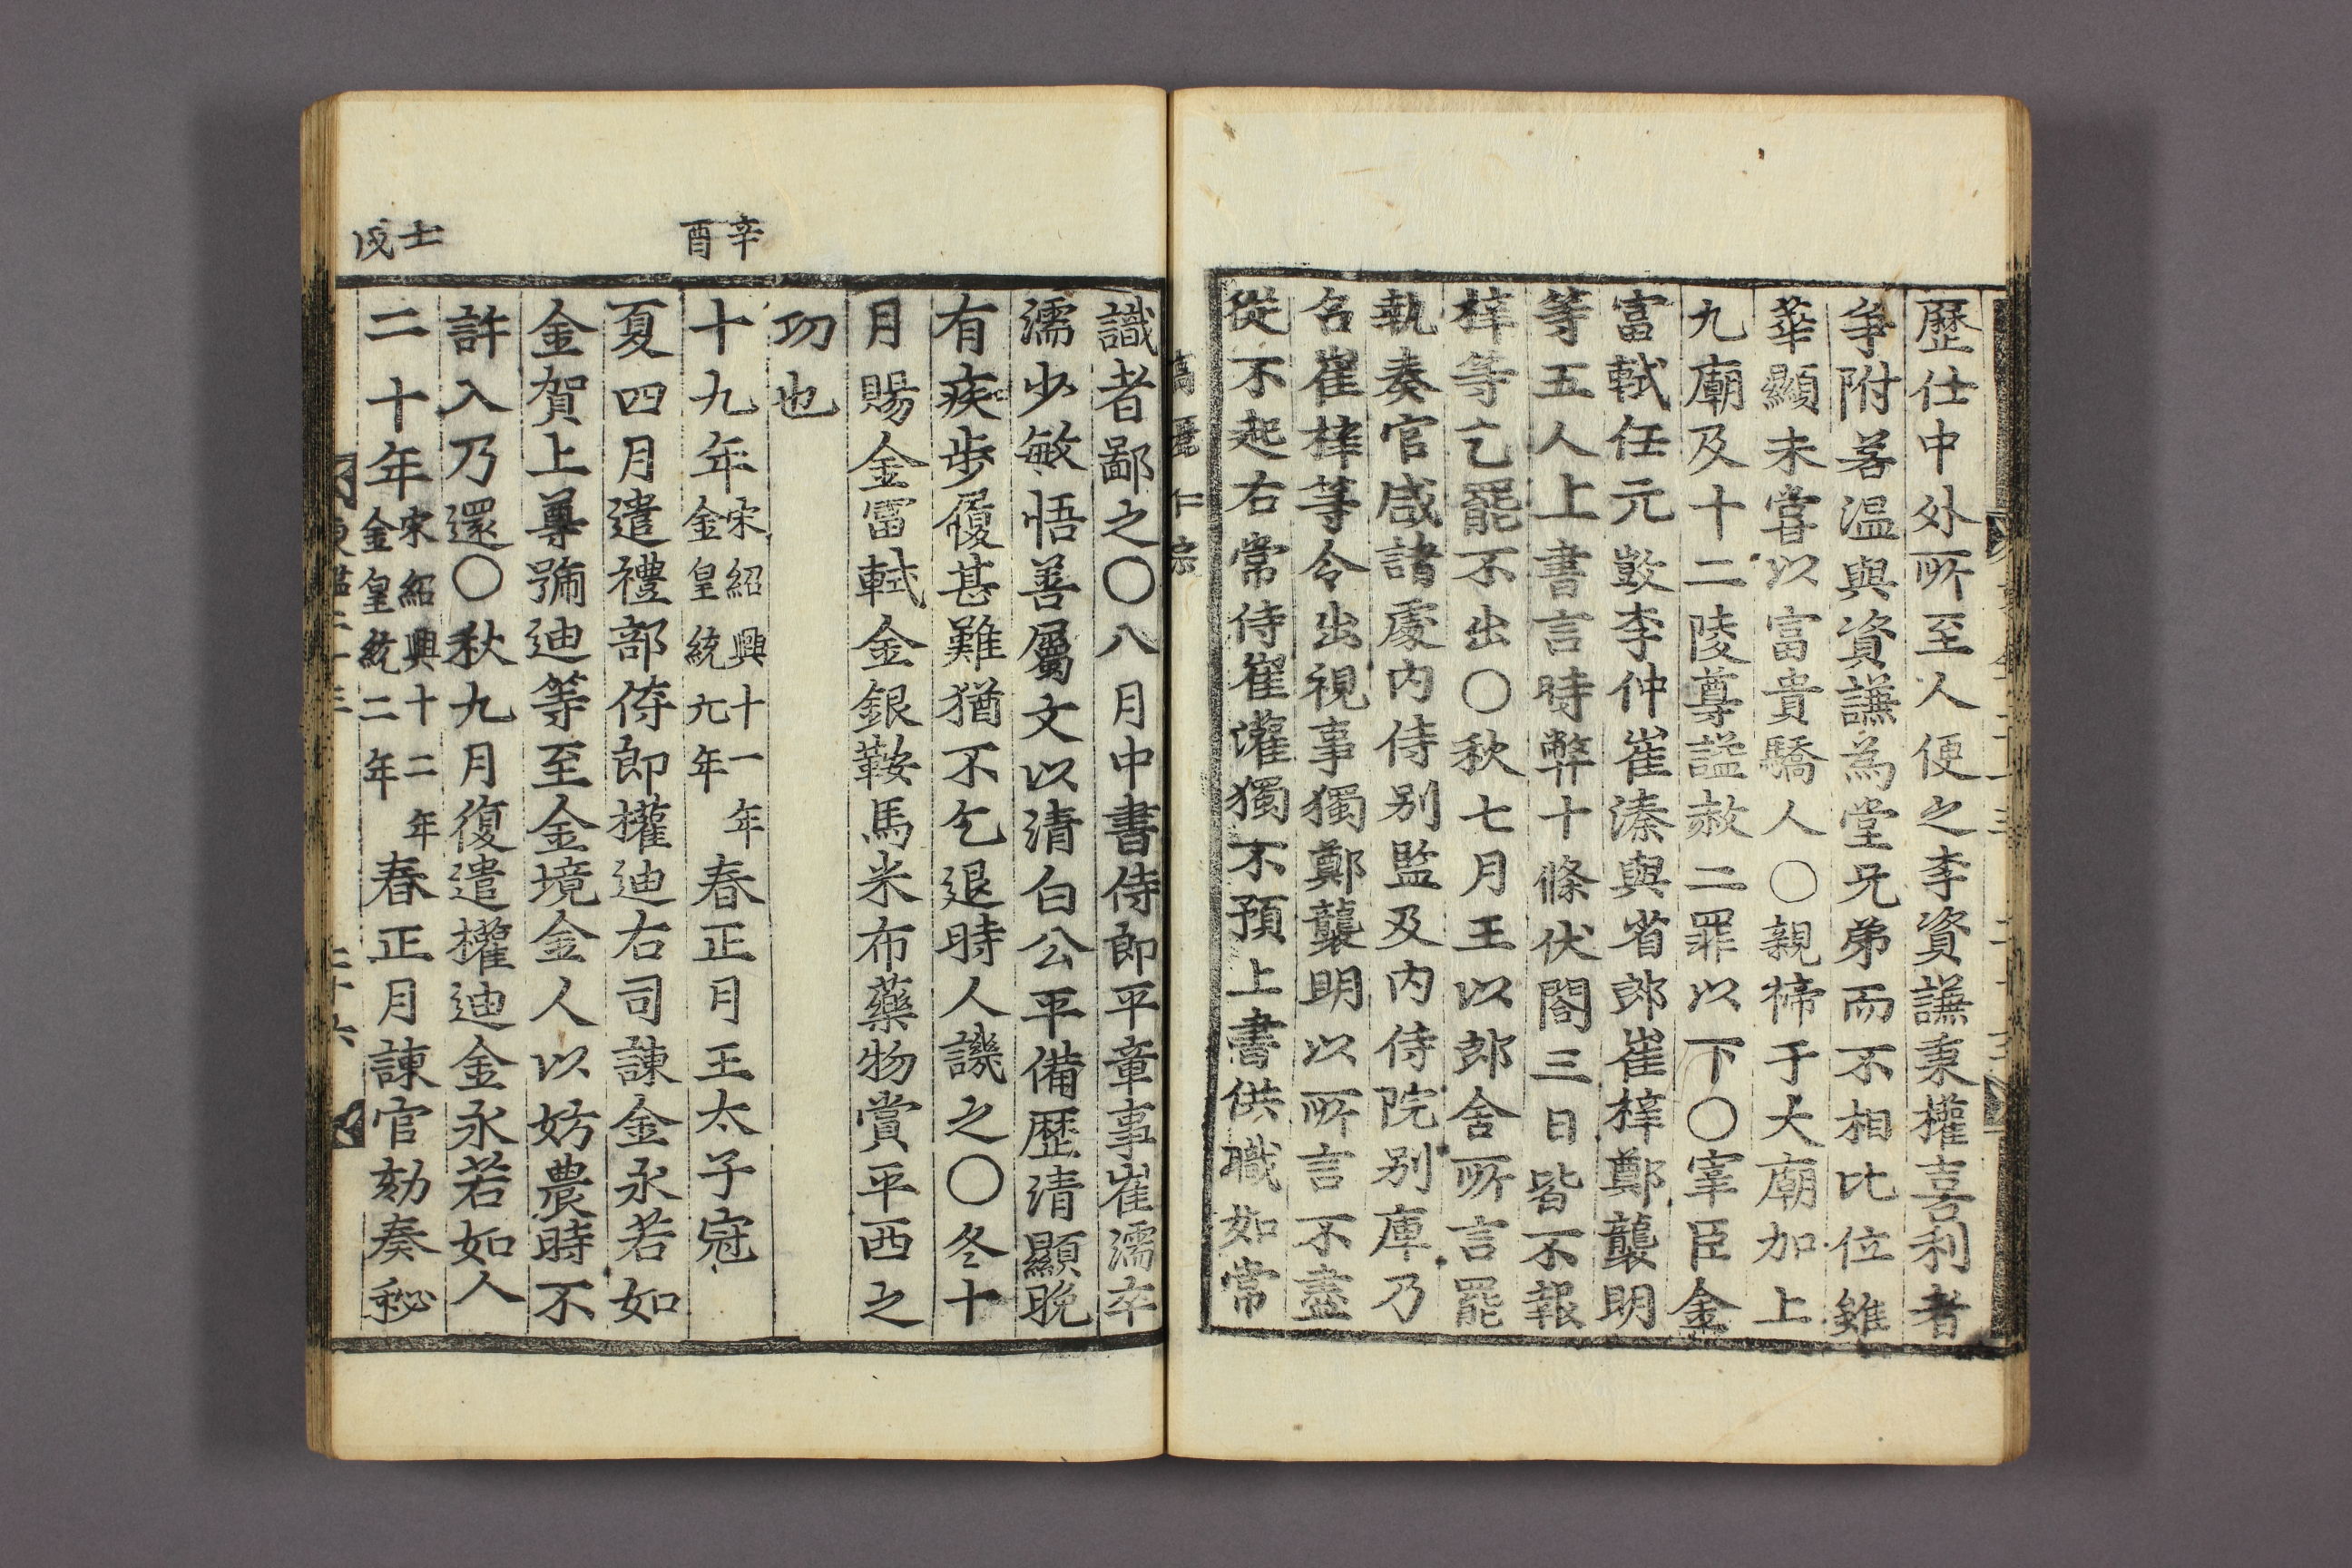 歷仕中外所至人便之李資謙秉權喜利者
爭附若温與資謙為堂兄弟而不相比位雖
華顯未嘗以富貴驕人〇親禘于大廟加上
九廟及十二陵尊謚赦二罪以下〇宰臣金
富軾任元敱李仲崔溱與省郎崔梓鄭襲明
等五人上書言時弊十條伏閤三日皆不報
梓等乞罷不出〇秋七月王以郎舍所言罷
執奏官咸諸處内侍别監及内侍院别庫乃
召崔梓等令出視事獨鄭襲明以所言不盡
從不起右常侍崔灌獨不預上書供職如常
高麗仁宗
識者鄙之〇八月中書侍郎平章事崔濡卒
濡少敏悟善屬文以清白公平備歷清顯晚
有疾步履甚難猶不乞退時人譏之〇冬十
月賜金富軾金銀鞍馬米布藥物賞平西之
功也
辛酉
十九年宋紹興十一年金皇統元年春正月王太子冠
夏四月遣禮部侍郎權迪右司諫金永若如
金賀上尊號迪等至金境金人以妨農時不
許入乃還〇秋九月復遣權迪金永若如人
壬戌
二十年宋紹興十二年金皇統二年春正月諫官劾奏秘